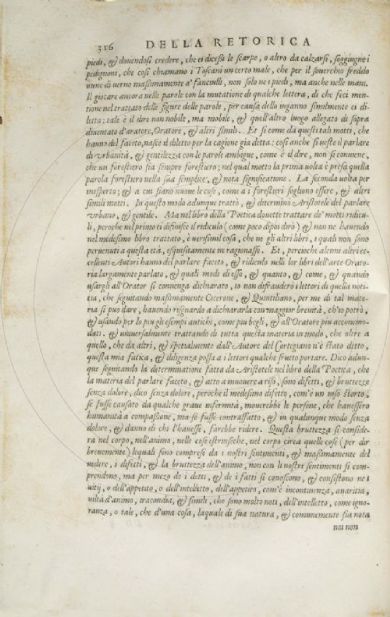 316 DELLA RETORICA
piedi, & douendosi credere, che ei dicesse le scarpe, o altro da calzarsi, soggiugne i
pedignoni, che così chiamano i Toscani un certo male, che per il souerchio freddo
uiene di uerno massimamente a' fanciulli, non solo ne i piedi, ma anche nelle mani.
Il giocare ancora nelle parole con la mutatione di qualche lettera, di che feci men-
tione nel trattato delle figure delle parole, per causa dello inganno similmente ci di-
letta; tale è il dire non nobile, ma mobile, & quell'altro luogo allegato di sopra
diuentato d'aratore, Oratore, & altri simili. Et si come da questi tali motti, che
hanno del faceto, nasce il diletto per la cagione già detta: così anche si uuole il parlare
di urbanità, & gentilezza con le parole ambigue, come è il dire, non si conuiene,
che un forestiero sia sempre forestiero; nel qual motto la prima uolta è presa quella
parola forestiero nella sua semplice, & nota significatione. La seconda uolta per
inesperto; & a cui siano nuoue le cose, come a i forestieri sogliono essere, & altri
simili motti. In questo modo adunque trattò, & determinò Aristotele del parlare
urbano, & gentile. Ma nel libro della Poetica douette trattare de' motti ridicu-
li, peroche nel primo ei diffinisce il ridiculo (come poco dipoi dirò) non ne hauendo
nel medesimo libro trattato, è uerisimil cosa, che in gli altri libri, i quali non sono
peruenuti a questa età, esquisitamente ne ragionassi. Et, perche alcuni altri ec-
cellenti Autori hanno del parlare faceto, & ridicolo nelle lor libri dell'arte Orato-
ria largamente parlato, & quali modi di esso, & quanto, & come, & quando
usargli all'Orator si conuenga dichiarato, io non difrauderò i lettori di quella noti-
tia, che seguitando massimamente Cicerone, & Quintiliano, per me di tal mate-
ria si può dare, hauendo riguardo a dichiararla con maggior breuità, ch'io potrò,
& usando per lo più gli esempi antichi, come più begli, & all'Oratore più accommo-
dati, & uniuersalmente trattando di tutta questa materia in modo, che oltre a
quello, che da altri, & spetialmente dall'Autore del Cortegiano n'è stato ditto,
questa mia fatica, & diligenza possa a i lettori qualche frutto portare. Dico adun-
que seguitando la determinatione fatta da Aristotele nel libro della Poetica, che
la materia del parlare faceto, & atto a muouere a riso, sono difetti, & bruttezze
senza dolore, dico senza dolore, peroche il medesimo difetto, com'è un uiso storto,
se fusse causato da qualche graue infermità, mouerebbe le persone, che hauessero
humanità a compassione, ma se fusse contrafatto, & in qualunque modo senza
dolore, & danno di chi l'hauesse, farebbe ridere. Questa bruttezza si conside-
ra nel corpo, nell'animo, nelle cose estrinsiche, nel corpo circa quelle cose (per dir
breuemente) lequali sono comprese da i nostri sentimenti, & massimamente del
uedere, i difetti, & la bruttezza dell'animo, non con li nostre sentimenti si com-
prendono, ma per mezo de i detti, & de i fatti si conoscono, & consistono ne i
uitij, o dell'appetito, o dell'intelletto, dell'appetito, com'è incontinenza, auaritia,
uiltà d'animo, iracondia, & simili, che sono molto noti, dell'intelletto, come igno-
ranza, o tale, che d'una cosa, laquale di sua natura, & communemente sia nota
noi non